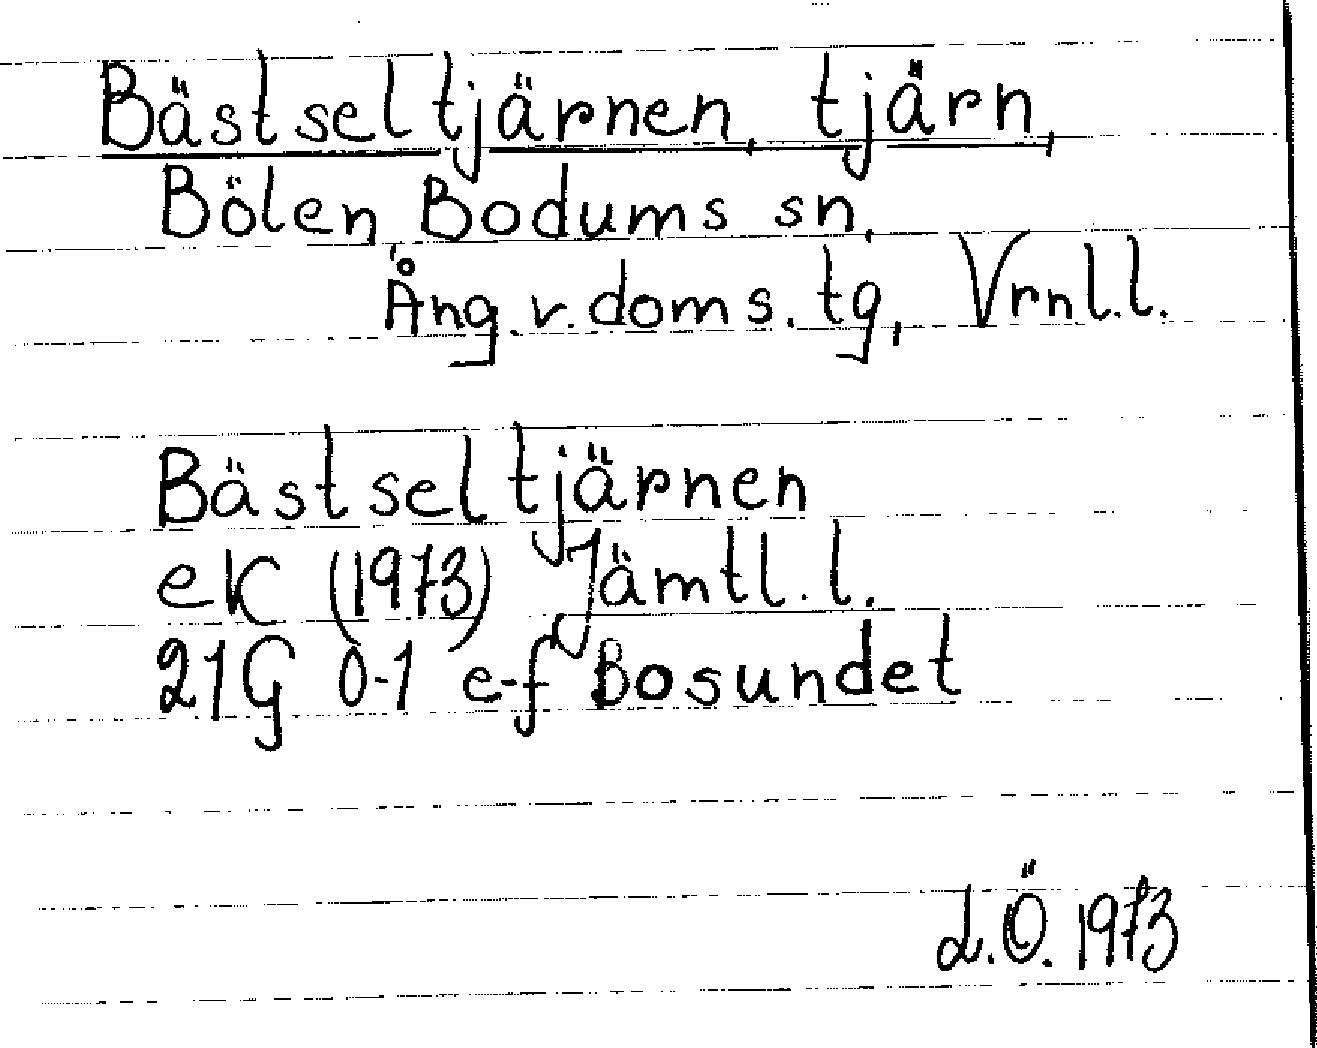 Bästseltjärnen, tjärn,
Bölen Bodums sn,
Ång. v. doms. tg, Vrnl. l.
Bästseltjärnen
ek (1973) Jämtl. l.
21G 0-1 e-f Bosundet
L.Ö. 1973